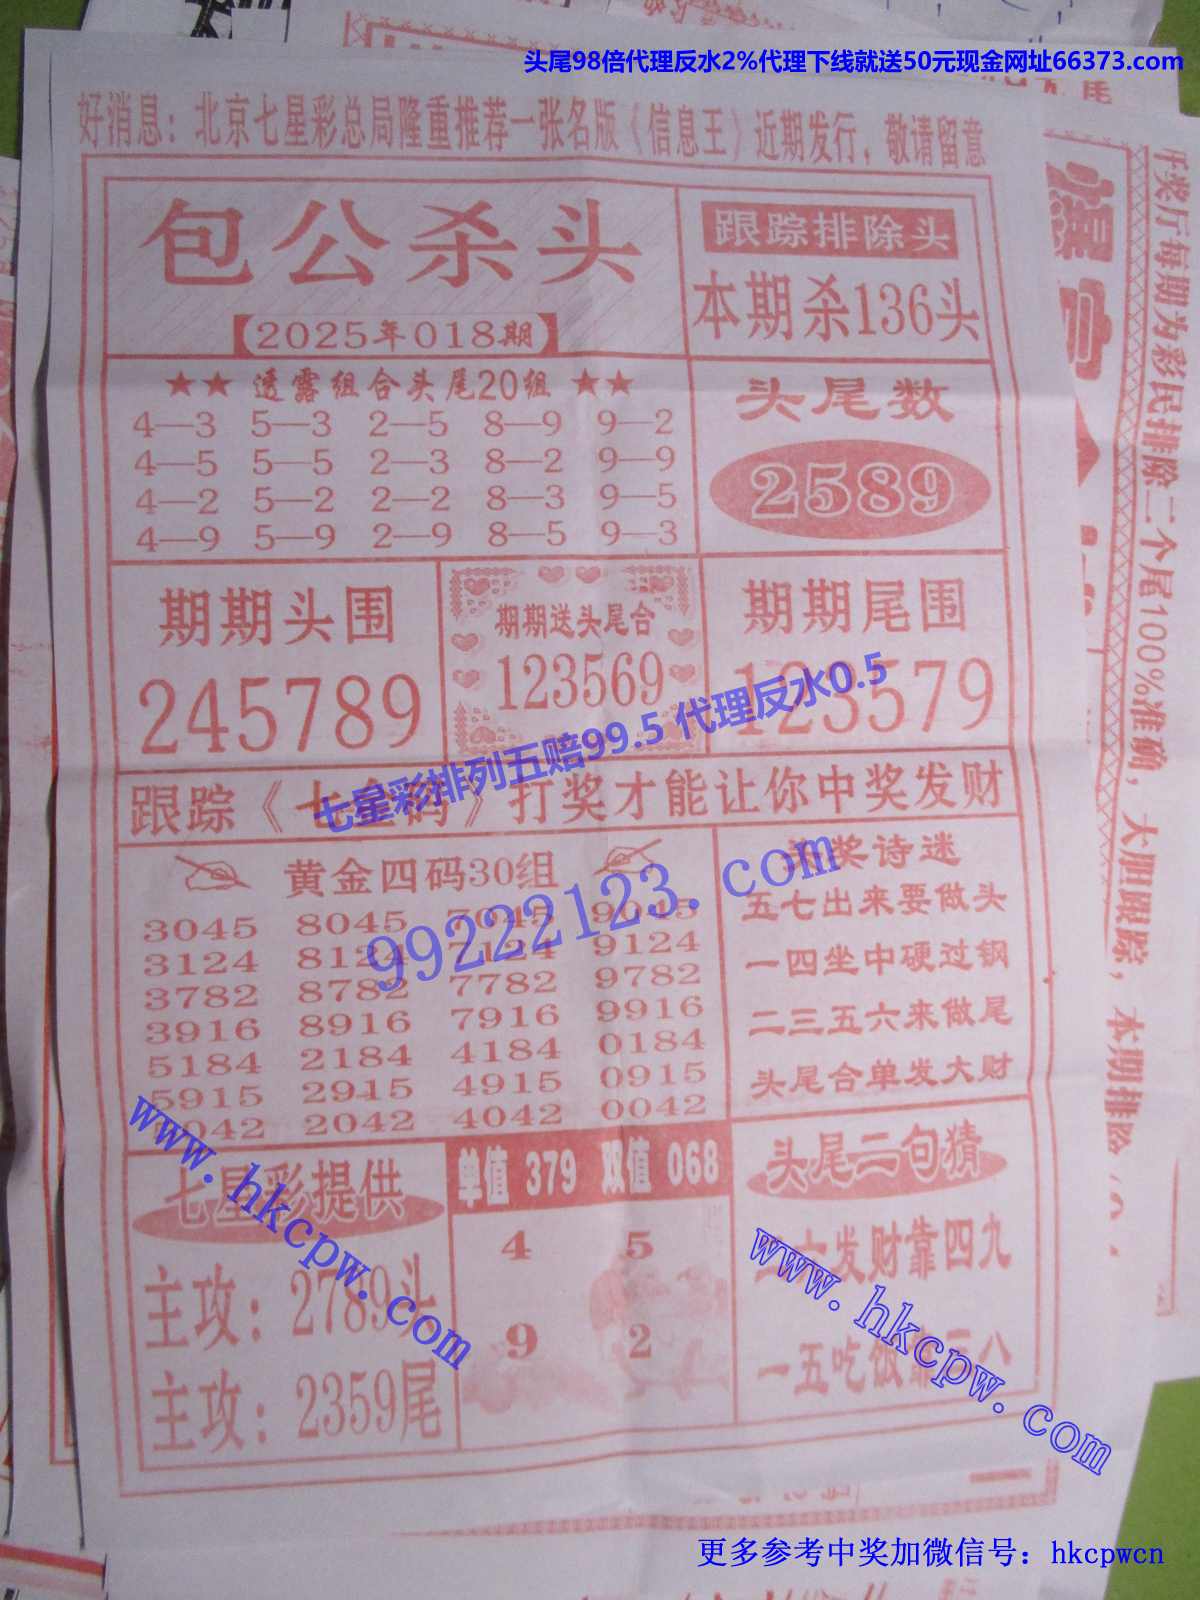 头尾98倍代理反水2%代理下线就送50元现金网址66373.com
好消息：北京七星彩总局隆重推荐一张名版《信息王》近期发行，敬请留意
包公杀头
【2025年018期】
跟踪排除头
本期杀136头
★★ 透露组合头尾20组 ★★
4—3 5—3 2—5 8—9 9—2
4—5 5—5 2—3 8—2 9—9
4—2 5—2 2—2 8—3 9—5
4—9 5—9 2—9 8—5 9—3
头尾数
2589
期期头围
245789
期期送头尾合
123569
期期尾围
123579
七星彩排列五赔99.5 代理反水0.5
跟踪《七星码》打奖才能让你中奖发财
黄金四码30组
3045 8045 7045 9045
3124 8124 7124 9124
3782 8782 7782 9782
3916 8916 7916 9916
5184 2184 4184 0184
5915 2915 4915 0915
5042 2042 4042 0042
99222123.com
奖诗迷
五七出来要做头
一四坐中硬过钢
二三五六来做尾
头尾合单发大财
七星彩提供
主攻：2789头
主攻：2359尾
www.hkcpw.com
单值 379 双值 068
4 5
9 2
头尾二句猜
六发财靠四九
一五吃饭靠八
www.hkcpw.com
开奖厅每期为彩民排除二个尾100%准确，大胆跟踪，本期排除
更多参考中奖加微信号：hkcpwcn